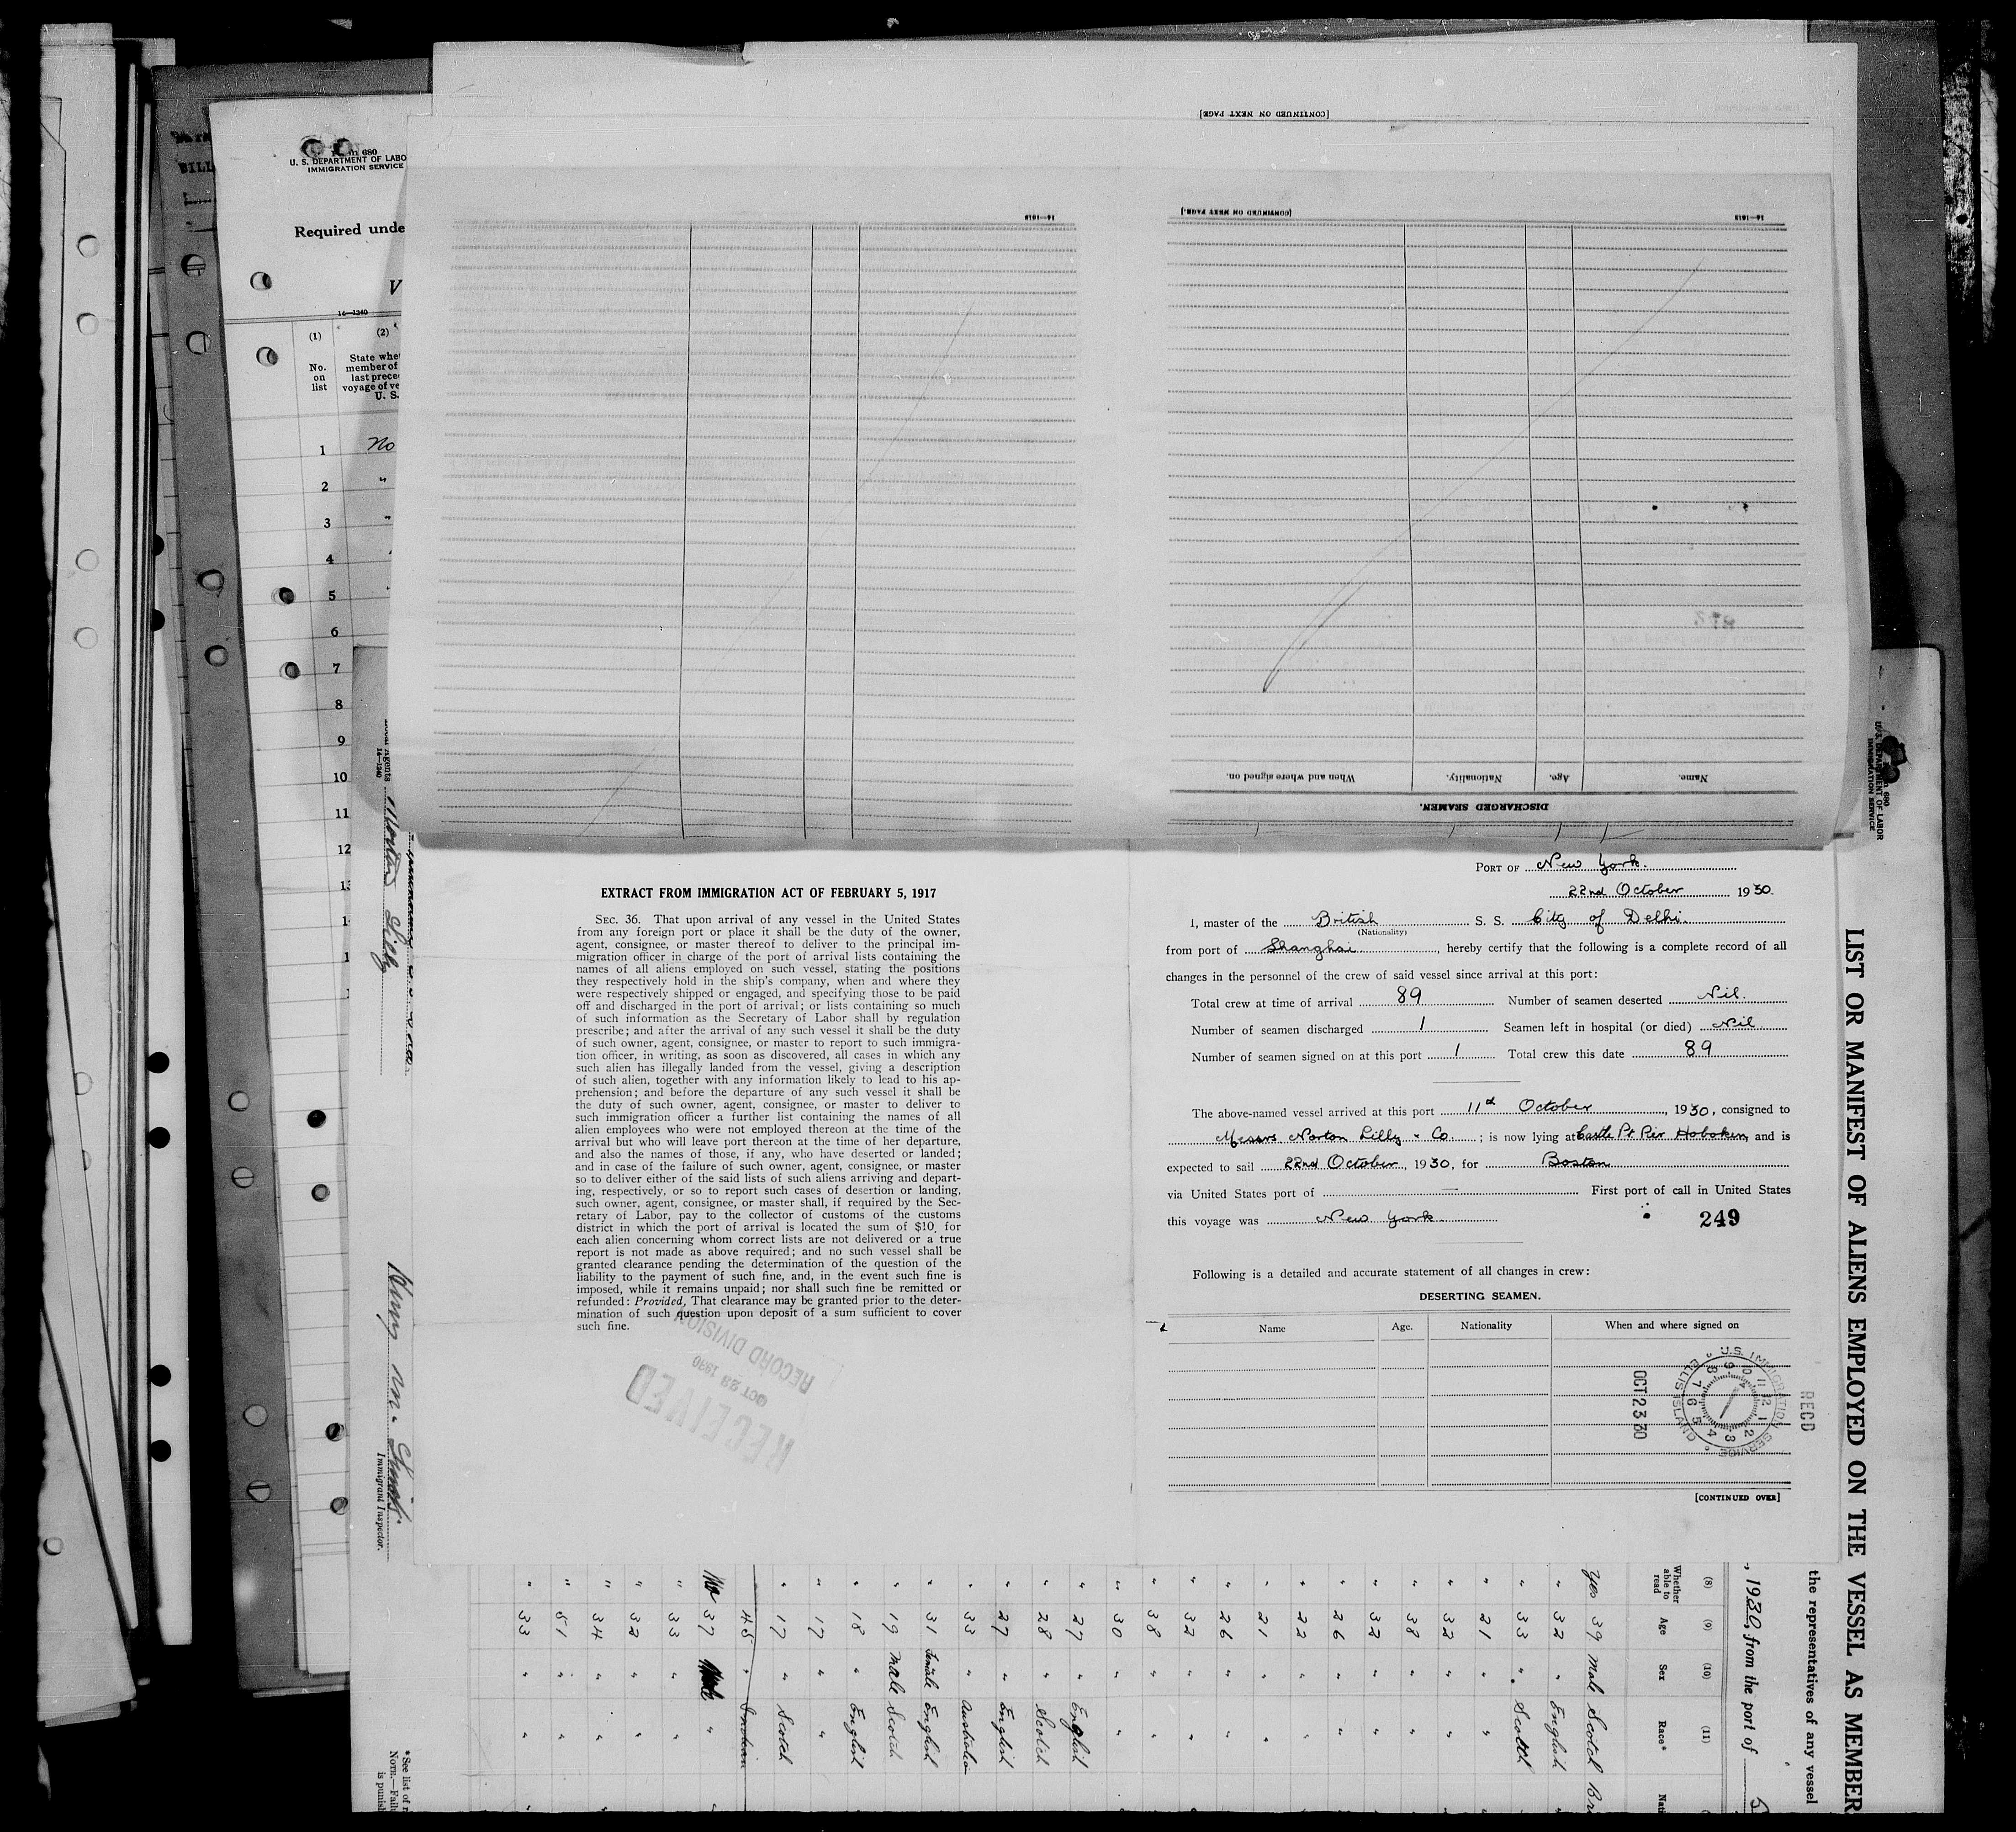 [CONTINUED ON NEXT PAGE]
[CONTINUED ON NEXT PAGE.]
16—1618
16—1618
DISCHARGED SEAMEN.
Name. Age. Nationality. When and where signed on.
680
U. S. DEPARTMENT OF LABO
IMMIGRATION SERVICE
Required unde
V
14—1240
(1) (2)
No. on list
State whet
member of
last prece
voyage of ve
U. S.
1 No
2 "
3 "
4
5
6
7
8
9
10
11
12
EXTRACT FROM IMMIGRATION ACT OF FEBRUARY 5, 1917
SEC. 36. That upon arrival of any vessel in the United States
from any foreign port or place it shall be the duty of the owner,
agent, consignee, or master thereof to deliver to the principal im-
migration officer in charge of the port of arrival lists containing the
names of all aliens employed on such vessel, stating the positions
they respectively hold in the ship's company, when and where they
were respectively shipped or engaged, and specifying those to be paid
off and discharged in the port of arrival; or lists containing so much
of such information as the Secretary of Labor shall by regulation
prescribe; and after the arrival of any such vessel it shall be the duty
of such owner, agent, consignee, or master to report to such immigra-
tion officer, in writing, as soon as discovered, all cases in which any
such alien has illegally landed from the vessel, giving a description
of such alien, together with any information likely to lead to his ap-
prehension; and before the departure of any such vessel it shall be
the duty of such owner, agent, consignee, or master to deliver to
such immigration officer a further list containing the names of all
alien employees who were not employed thereon at the time of the
arrival but who will leave port thereon at the time of her departure,
and also the names of those, if any, who have deserted or landed;
and in case of the failure of such owner, agent, consignee, or master
so to deliver either of the said lists of such aliens arriving and depart-
ing, respectively, or so to report such cases of desertion or landing,
such owner, agent, consignee, or master shall, if required by the Sec-
retary of Labor, pay to the collector of customs of the customs
district in which the port of arrival is located the sum of $10, for
each alien concerning whom correct lists are not delivered or a true
report is not made as above required; and no such vessel shall be
granted clearance pending the determination of the question of the
liability to the payment of such fine, and, in the event such fine is
imposed, while it remains unpaid; nor shall such fine be remitted or
refunded: Provided, That clearance may be granted prior to the deter-
mination of such question upon deposit of a sum sufficient to cover
such fine.
RECEIVED
OCT 29 1930
RECORD DIVISION
PORT OF New York.
22nd October 1930.
I, master of the British S. S. City of Delhi.
(Nationality)
from port of Shanghai, hereby certify that the following is a complete record of all
changes in the personnel of the crew of said vessel since arrival at this port:
Total crew at time of arrival 89 Number of seamen deserted Nil.
Number of seamen discharged 1 Seamen left in hospital (or died) Nil
Number of seamen signed on at this port 1 Total crew this date 89
The above-named vessel arrived at this port 11th October, 1930, consigned to
Messrs Norton Lilly & Co.; is now lying at Castle Pt Pier Hoboken, and is
expected to sail 22nd October, 1930, for Boston
via United States port of — First port of call in United States
this voyage was New York. 249
Following is a detailed and accurate statement of all changes in crew:
DESERTING SEAMEN.
Name Age. Nationality When and where signed on
U.S. IMMIGRATION SERVICE ELLIS ISLAND
RECD
OCT 23 30
[CONTINUED OVER]
LIST OR MANIFEST OF ALIENS EMPLOYED ON THE VESSEL AS MEMBER
the representatives of any vessel
, 1930, from the port of
680
U. S. DEPARTMENT OF LABOR
IMMIGRATION SERVICE
(8) (9) (10) (11)
Whether able to read Age Sex Race* Nati
Yes 39 Male Scotch Br
" 32 " English
" 33 " Scotch
" 21 " "
" 32 " "
" 38 " "
" 32 " "
" 26 " "
" 22 " "
" 21 " "
" 26 " "
" 32 " "
" 38 " "
" 30 " "
" 27 " English
" 28 " Scotch
" 27 " English
" 33 " Australian
" 31 Female English
" 19 Male Scotch
" 18 " English
" 17 " "
" 17 " Scotch
45 " Indian
No 37 Male "
" 33 " "
" 32 " "
" 34 " "
" 51 " "
" 33 " "
Agents Norton Lilly
14—1240
Henry M. Smith
Immigrant Inspector.
*See list of r
NOTE.—Failu
is punish